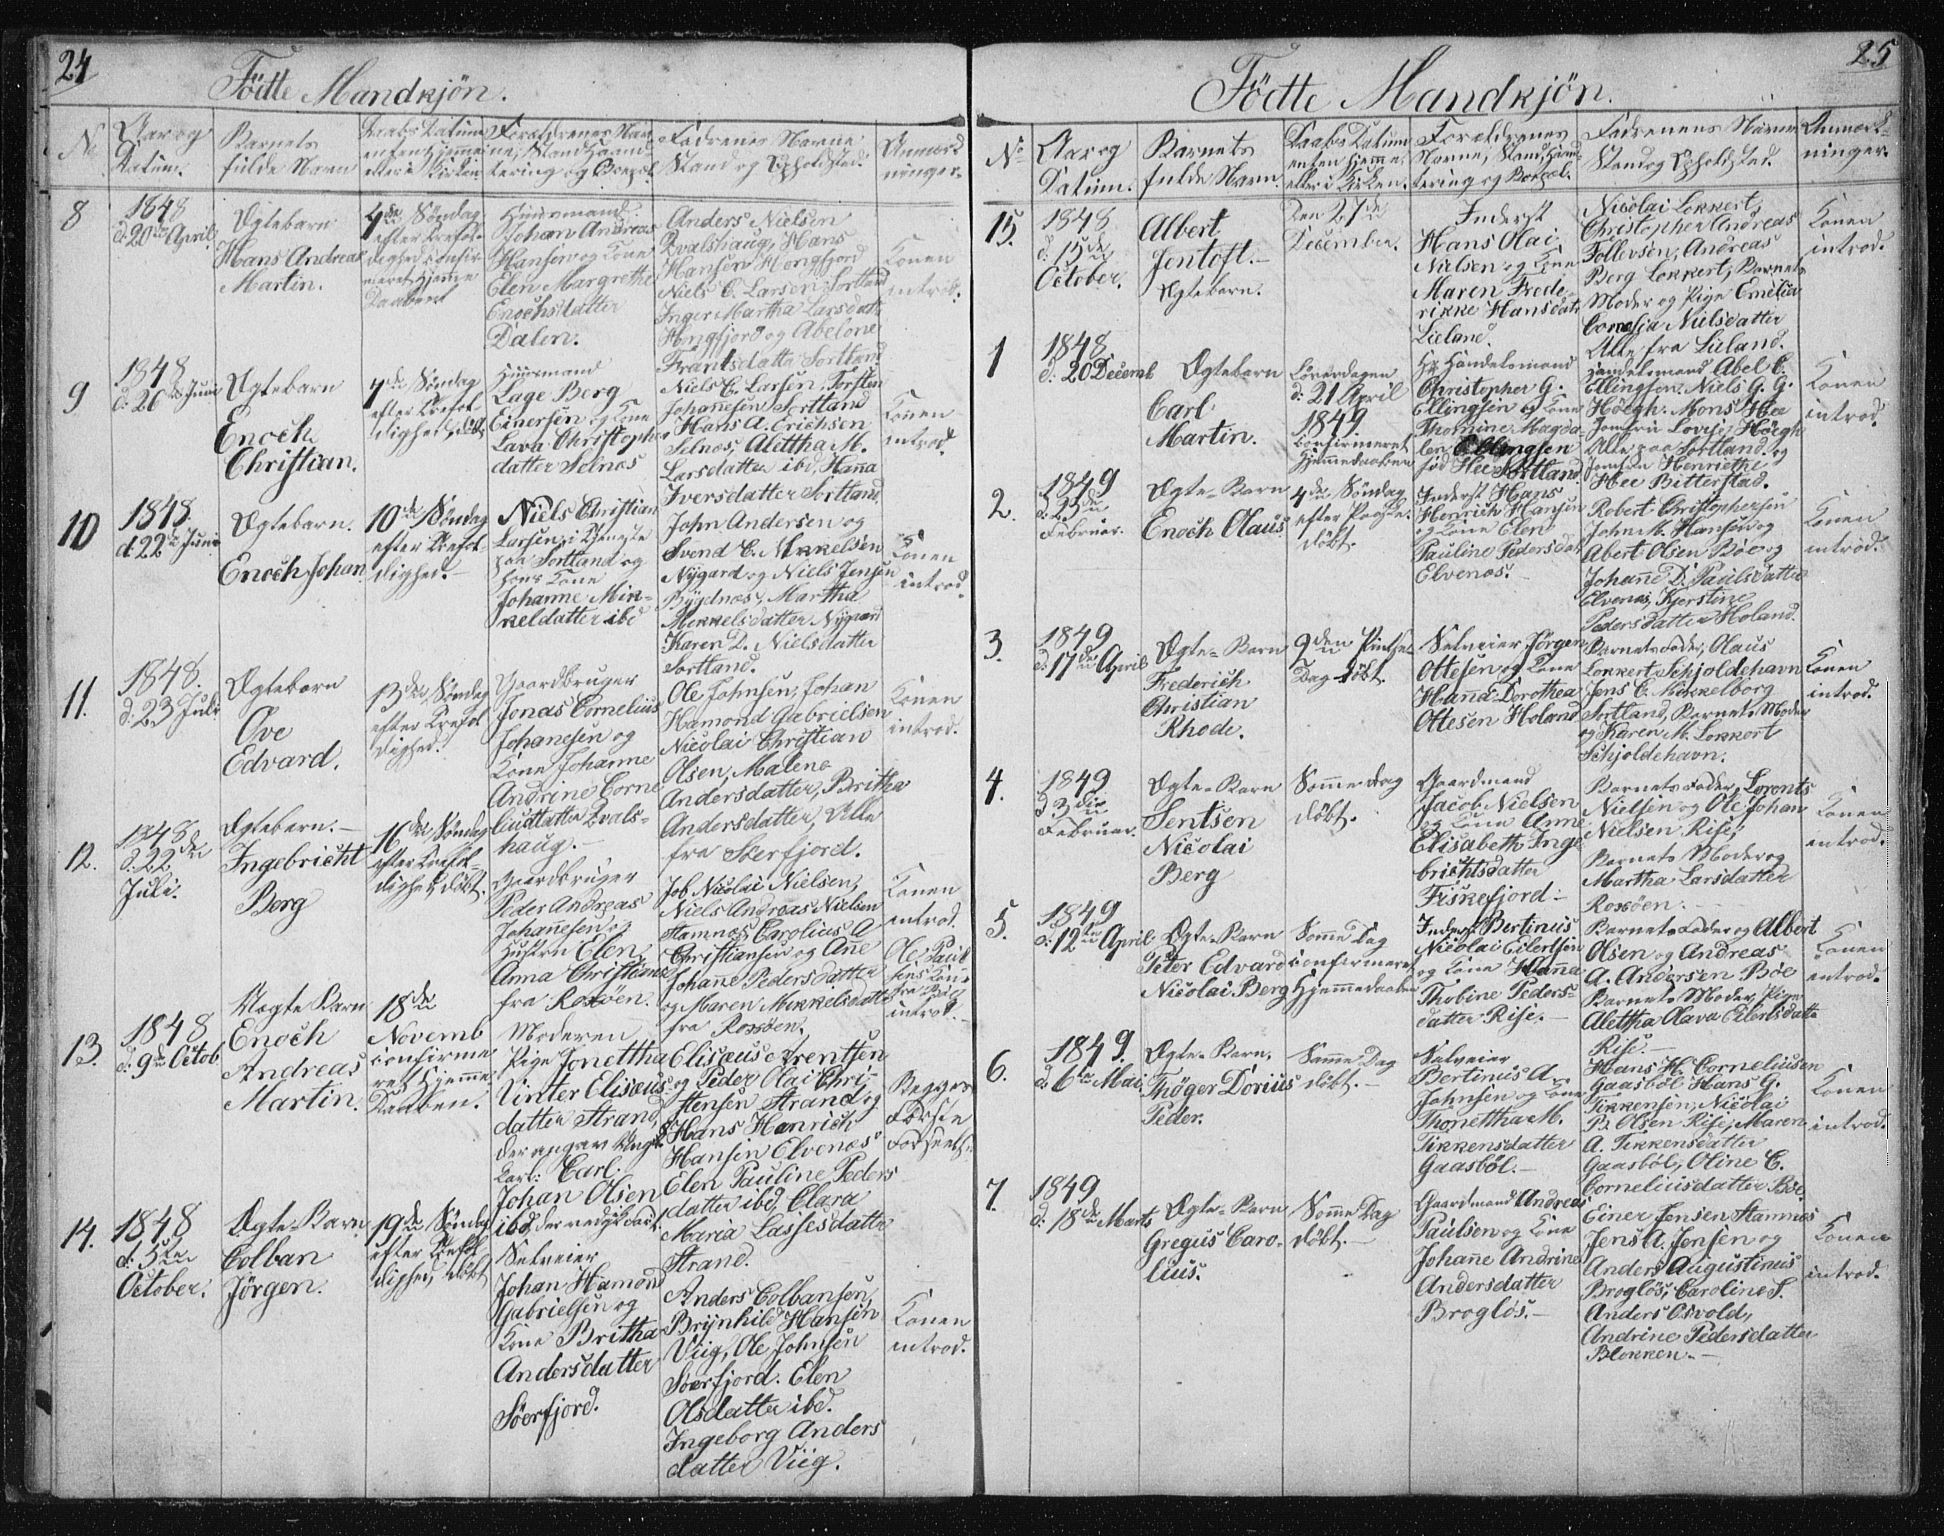 24
Födte Mandkjön.
No
Aar og
Datum.
Barnets
fulde Navn
Daabs Datum
enten hjemme
eller i Kirken
Forældrenes Nav
ne, Stand, Haand
tering og Bopæl.
Fadrenes Navne
Stand og Opholdsted
Anmærk
ninger.
8
1848
d: 20de April
Ægtebarn
Hans Andreas
Martin.
4de Söndag
efter Trefol-
dighed confir
meret hjemme
Daaben
Huusmand
Johan Andreas
Hansen og Kone
Elen Margrethe
Enochsdatter
Dalen.
Anders Nielsen
Kvalshaug, Hans
Hansen Hongfjord
Niels C. Larsen, Sortland
Inger Martha Larsdatt
Hongfjord og Abelone
Frantsdatter Sortland
Konen
introd.
9
1848
d: 26de Juni
Ægtebarn
Enoch
Christian.
7de Söndag
efter Trefol-
dighed, döbt
Huusmand
Lage Berg
Einersen og Kone
Lava Christopher
datter Selnes
Niels C. Larsen, Torsten
Johannesen Sortland
Hans A. Erichsen
Selnes, Alettha M.
Larsdatter ibd, Hanna
Iversdatter Sortland
Konen
introd.
10
1848.
d: 22de Juni
Ægtebarn.
Enoch Johan
10de Söndag
efter Trefol-
dighed.
Niels Christian
Larsen, i Tjeneste
paa Sortland og
hans Kone
Johanne Mik-
keldatter ibd
John Andersen og
Svend C. Mikkelsen
Nygard og Niels Jensen
Bygdnes, Martha
Mikkelsdatter Nygard
Karen D. Nielsdatter
Sortland.
Konen
introd.
11.
1848.
d: 23 Juli
Ægtebarn
Ove
Edvard.
13de Söndag
efter Trefol
dighed.
Gaardbruger
Jonas Cornelius
Johanesen og
Kone Johanne
Andrine Corne
liusdatter Kvals-
haug.
Ole Johnsen, Johan
Hamond Gabrielsen
Nicolai Christian
Olsen, Malene
Andersdatter, Britha
Andersdatter, Alle
fra Soerfjord.
Konen
introd.
12.
1848
d: 22de
Juli.
Ægtebarn.
Ingebricht
Berg
16de Söndag
efter Trefol-
dighed, döbt.
Gaardbruger
Peder Andreas
Johanesen og
Hustru Elen
Anna Christians
fra Roxöen.
Job Nicolai Nielsen,
Niels Andreas Nielsen
Hamnes, Carolius A
Christiansen og Ane
Johanne Pedersdatter
og Maren Mikkelsdatt
fra Roxöen.
Konen
introd.
Ole Paul
sens Kone
fra Böe
introd.
13.
1848
d: 9de Octob
Uægte Barn
Enoch
Andreas
Martin.
18de
Novemb
confirme
ret hjemme
Daaben.
Moderen
Pige Jonettha
Vinter Elisæus
datter Strand,
der angav Ungk
Karl: Carl
Johan Olsen
ibd, der vedgik det.
Elisæus Arentsen
og Peder Olai Chri
stensen Strand og
Hans Henrich
Hansen Elvenæs
Elen Pauline Peders
datter ibd, Clara
Maria Lassesdatter
Strand.
Begges
Förste
Forseelse
14.
1848
d. 5te
October.
Ægte Barn
Colban
Jörgen.
19de Söndag
efter Trefol
dighed, döbt
Selveier
Johan Hamond
Gabrielsen og
Kone Britha
Andersdatter
Söerfjord.
Anders Colbansen,
Brynhild Hansen
Viig, Ole Johnsen
Soerfjord. Elen
Olsdatter ibd.
Ingeborg Anders
datter Viig.
Konen
introd.
25
Födte Mandkjön.
No
Aar og
Datum.
Barnets
fulde Navn.
Daabs Datum
enten hjemme
eller i Kirken.
Forældrenes
Navne, Stand, Haand
tering og Bopæl.
Fadrenens Navne
Stand og Opholdsted.
Anmærk-
ninger.
15.
1848
d: 15de
October.
Albert
Jentoft.
Ægtebarn.
Den 27de
December.
Inderst
Hans Olai
Nielsen og Kone
Maren Frede-
rikke Hansdatt
Lieland.
Nicolai Lokkert,
Christopher Andreas
Follevsen, Andreas
Berg Lokkert, Barnets
Moder og Pige Emelia
Cornelia Nielsdatter
Alle fra Lieland.
Konen
introd.
1
1848
d: 20 Decemb
Ægtebarn
Carl
Martin.
Löverdagen
d: 21 April
1849
confirmeret
hjemmedaaben
Hr Handelsmand
Christopher G.
Ellingsen og Kone
Thomine Magda-
len Ellingsen
föd Hee Sortland
Handelsmand Abel C.
Ellingsen. Niels G. G.
Höegh. Mons Hee
Jomfru Lovise Höegh
Alle paa Sortland og
Jomfru Henriethe
Hee Bitterstad.
Konen
introd.
2.
1849
d: 25de
Februar.
Ægte-Barn
Enoch Olaus
4de Söndag
efter Paaske.
döbt.
Inderst Hans
Henrich Hansen
og Kone Elen
Pauline Pedersdat
Elvenæs.
Robert Christophersen
John M. Hansen og
Abert Olsen Böe og
Johanne D. Paulsdatter
Elvenæs, Kjerstine
Pedersdatter Holand.
Konen
introd.
3.
1849
d: 17de April
Ægte-Barn
Frederich
Christian
Rhode.
2den Pintse
Dag döbt.
Selveier Jörgen
Ottesen og Kone
Hanna Dorothea
Ottesen Holand
Barnets Fader, Olaus
Lokkert Skjoldehavn
Jens C. Kikkelborg
Sortland, Barnets Moder
og Karen M. Lokkert
Skjoldehavn.
Konen
introd.
4.
1849
d 3die
Februar.
Ægte-Barn
Sentsen
Nicolai
Berg
Samme dag
döbt.
Gaardmand
Jacob Nielsen
og Kone Anne
Elisabeth Inge
brichtsdatter
Fiskefjord
Barnets Fader, Lorents
Nielsen og Ole Johan
Nielsen Rise,
Barnets Moder og
Martha Larsdatter
Roxöen.
Konen
introd.
5.
1849
d: 12te April
Ægte-Barn
Peter Edvard
Nicolai Berg
Samme Dag
confirmeret
hjemmedaaben
Inderst Bertinius
Nicolai Eilertsen
og Kone Hanna
Thobine Peders-
datter Rise.
Barnets Fader og Albert
Olsen og Andreas
A. Andersen Böe
Barnets Moder, Pige
Alettha Olava Eilertsdatte
Rise.
Konen
introd.
6.
1849.
d: 6te Mai
Ægte-Barn.
Thöger Dorius
Peder.
Samme Dag
döbt.
Selveier
Bertinius A.
Johnsen og Kone
Thonettha M.
Tikkensdatter
Gaasböl.
Hans H. Corneliusen
Gaasböl Hans G.
Tikkensen, Nicolai
P. Olsen Rise, Maren
A. Tikkensdatter
Gaasböl, Oline C.
Corneliusdatter Böe
Konen
introd.
7.
1849
d: 18de Marts
Ægte-Barn
Gregus Caro-
lius.
Samme Dag
döbt.
Gaardmand Andreas
Paulsen og Kone
Johanne Andrine
Andersdatter
Broglös.
Einer Jensen Hamnes
Jens A. Jensen og
Anders Augustinus
Broglös, Caroline S.
Anders Osvold,
Andrine Pedersdatter
Blokken.
Konen
introd.